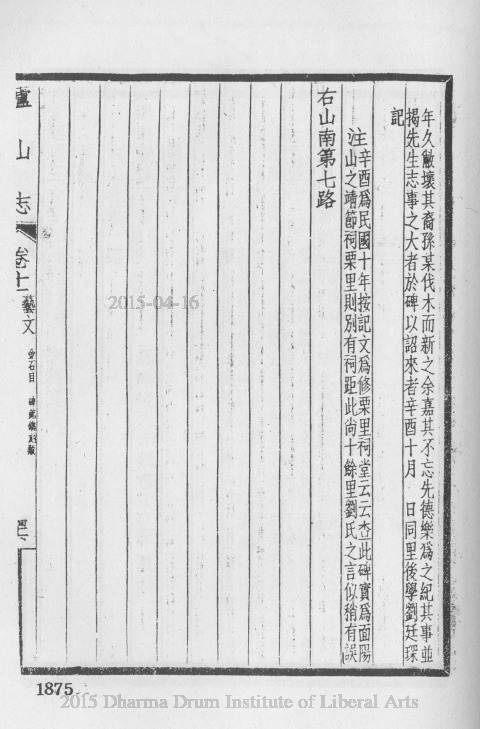 年久敝壞其裔孫某伐木而新之余嘉其不忘先德樂爲之紀其事並
揭先生志事之大者於碑以詔來者辛酉十月　日同里後學劉廷琛
記
注辛酉爲民國十年按記文爲修栗里祠堂云云查此碑實爲面陽
山之靖節祠栗里則別有祠距此尚十餘里劉氏之言似稍有誤
右山南第七路
廬山志
卷十一
藝文
金石目
2015-04-16
1875
2015 Dharma Drum Institute of Liberal Arts